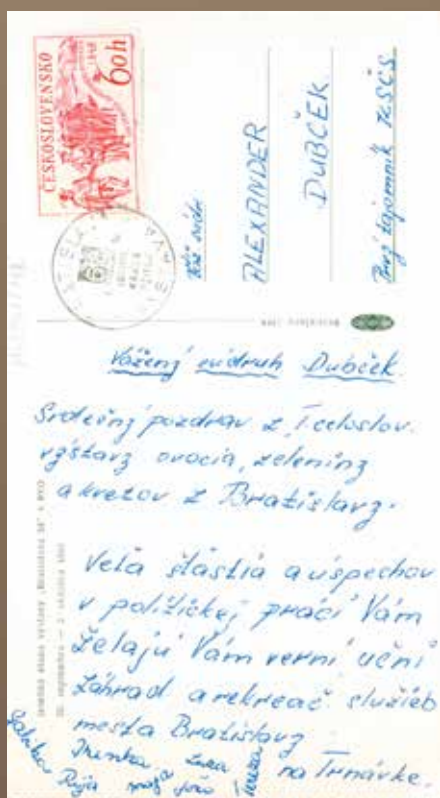 ČESKOSLOVENSKO
60h
Váš súdr.
ALEXANDER
DUBČEK
Prvý tajomník KSČS
BRATISLAVA
Vážený súdruh Dubček.
Srdečný pozdrav z I. celoslov.
výstavy ovocia, zeleniny
a kvetov z Bratislavy.
Veľa šťastia a úspechov
v politickej práci Vám
želajú Vám verní učni
záhrad a rekreač. služieb
mesta Bratislavy
na Trnávke.